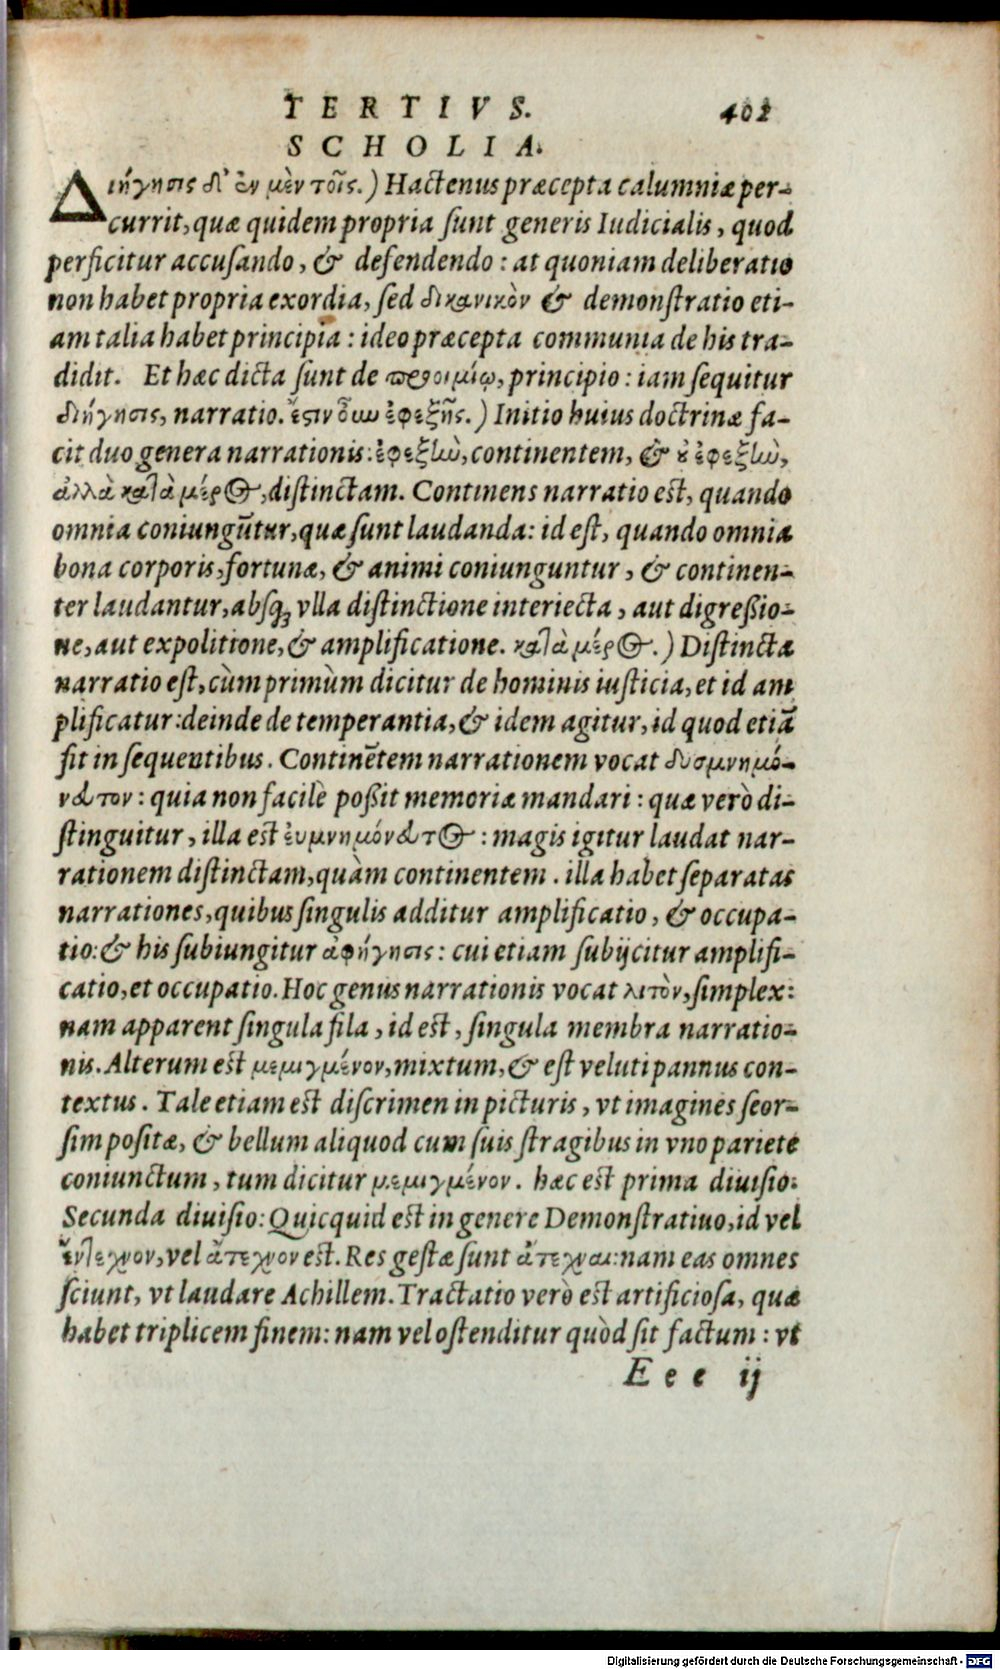 TERTIVS. 402
SCHOLIA.
Διήγησις δ' ἐν μὲν τοῖς.) Hactenus præcepta calumniæ per-
currit, quæ quidem propria sunt generis Iudicialis, quod
perficitur accusando, & defendendo: at quoniam deliberatio
non habet propria exordia, sed δικανικὸν & demonstratio eti-
am talia habet principia: ideo præcepta communia de his tra-
didit. Et hæc dicta sunt de προοιμίῳ, principio: iam sequitur
διήγησις, narratio. ἔστιν οὖν ἐφεξῆς.) Initio huius doctrinæ fa-
cit duo genera narrationis: ἐφεξῆς, continentem, & οὐ ἐφεξῆς,
ἀλλὰ κατὰ μέρος, distinctam. Continens narratio est, quando
omnia coniungũtur, quæ sunt laudanda: id est, quando omnia
bona corporis, fortunæ, & animi coniunguntur, & continen-
ter laudantur, absq; vlla distinctione interiecta, aut digreßio-
ne, aut expolitione, & amplificatione. κατὰ μέρος.) Distincta
narratio est, cùm primùm dicitur de hominis iusticia, et id am
plificatur: deinde de temperantia, & idem agitur, id quod etiã
fit in sequentibus. Continẽtem narrationem vocat δυσμνημό-
νευτον: quia non facilè poßit memoriæ mandari: quæ verò di-
stinguitur, illa est ἐυμνημόνευτος: magis igitur laudat nar-
rationem distinctam, quàm continentem. illa habet separatas
narrationes, quibus singulis additur amplificatio, & occupa-
tio: & his subiungitur ἀφήγησις: cui etiam subijcitur amplifi-
catio, et occupatio. Hoc genus narrationis vocat λιτὸν, simplex:
nam apparent singula fila, id est, singula membra narratio-
nis. Alterum est μεμιγμένον, mixtum, & est veluti pannus con-
textus. Tale etiam est discrimen in picturis, vt imagines seor-
sim positæ, & bellum aliquod cum suis stragibus in vno pariete
coniunctum, tum dicitur μεμιγμένον. hæc est prima diuisio.
Secunda diuisio: Quicquid est in genere Demonstratiuo, id vel
ἔντεχνον, vel ἄτεχνον est. Res gestæ sunt ἄτεχναι: nam eas omnes
sciunt, vt laudare Achillem. Tractatio verò est artificiosa, quæ
habet triplicem finem: nam vel ostenditur quòd sit factum: vt
Eee ij
Digitalisierung gefördert durch die Deutsche Forschungsgemeinschaft - DFG